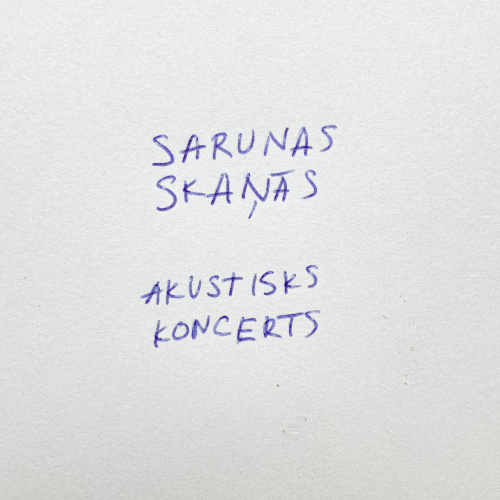 SARUNAS
SKAŅĀS
AKUSTISKS
KONCERTS